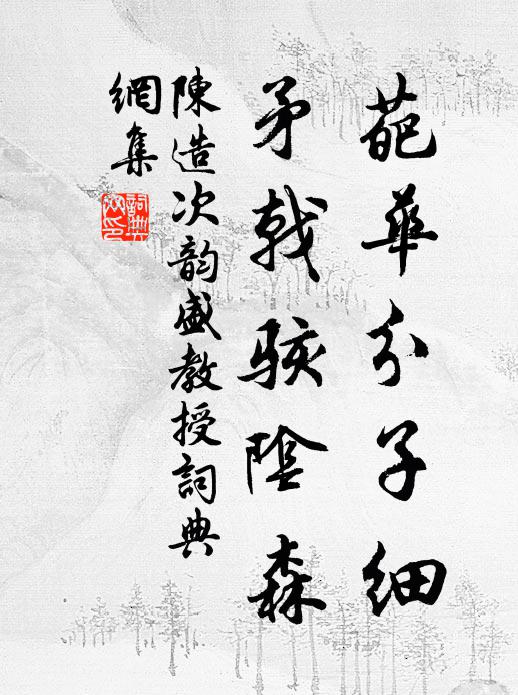 葩華分子細
矛戟駭陰森
陳造次韵盛教授詞典
網集
詞典網印